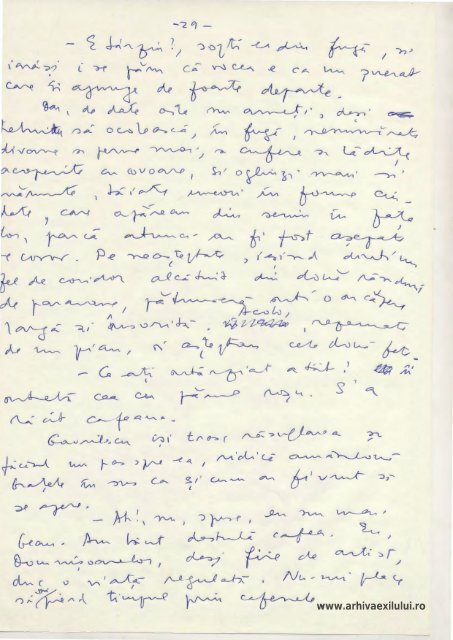 -29-
- E târziu!, șopti ea din fugă, și
iarăși i se păru că vocea e ca un
care îi ajunge de foarte departe.
Dar, de data asta nu ameți, deși
trebuiră să ocolească, în fugă, nenumărate
divane și perne moi, și cufere și lădițe
acoperite cu covoare, și oglinzi mari și
mărunte, tăiate uneori în forme ciu-
date, care apăreau din senin în fața
lor, parcă atunci ar fi fost așezate
pe covor. Pe neașteptate, ieșind dintr'un
fel de coridor alcătuit din două rânduri
de paravane, pătrunseră într'o încăpere
largă și însorită. Acolo, rezemate
de un pian, îi așteptau cele două fet-
- Ce ați întârziat atât! îi
întreabă cea cu părul roșu. S'a
răcit cafeaua.
Gavrilescu își trase răsuflarea și
făcând un pas spre ea, ridică amândouă
brațele în sus ca și cum ar fi vrut să
se apere.
- Ah!, nu, spuse, eu nu mai
beau. Am băut destulă cafea. Eu,
Domnișoarelor, deși fire de artist,
duc o viață regulată. Nu-mi place
să pierd timpul prin cafenele
www.arhivaexilului.ro